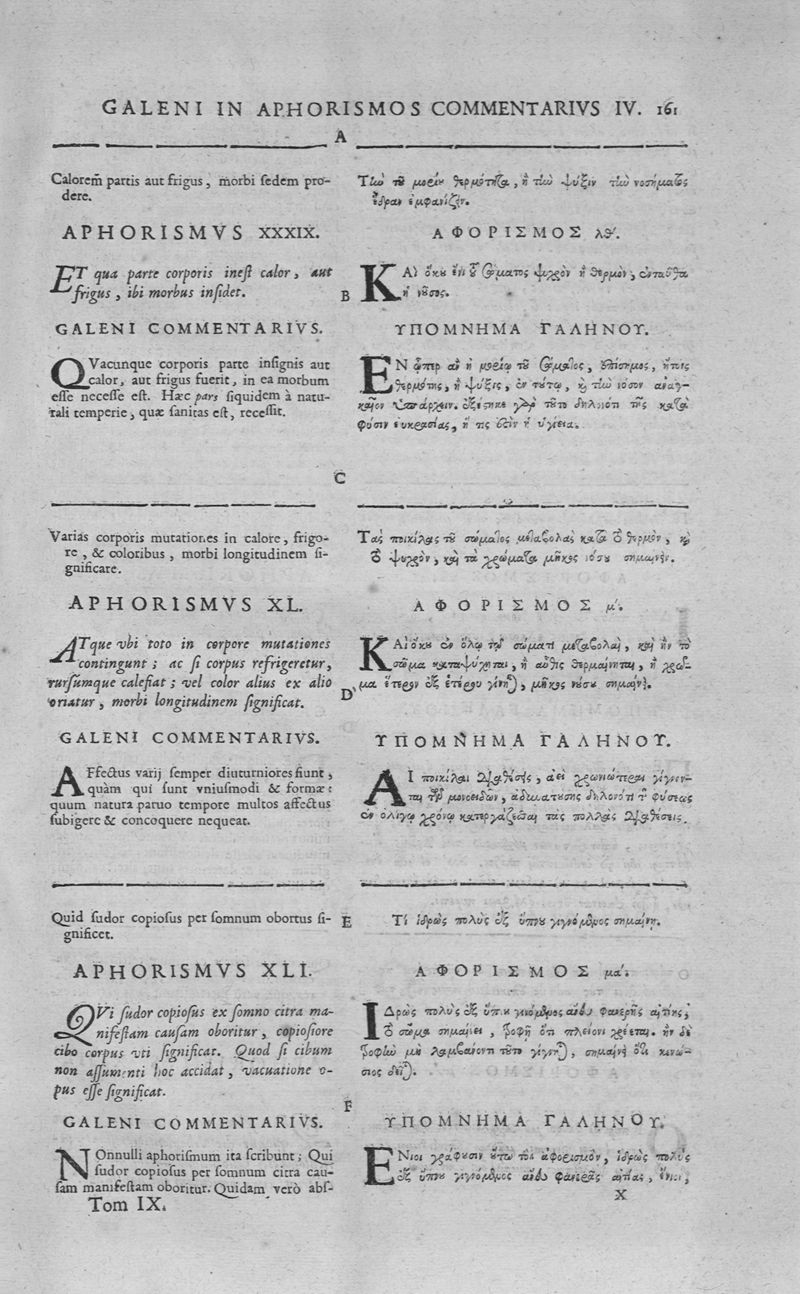 GALENI IN APHORISMOS COMMENTARIVS IV. 161
A
Calorem partis aut frigus, morbi ſedem pro-
dere.
APHORISMVS XXXIX.
ET qua parte corporis ineſt calor, aut
frigus, ibi morbus inſidet.
GALENI COMMENTARIVS.
QVacunque corporis parte inſignis aut
calor, aut frigus fuerit, in ea morbum
eſſe neceſſe eſt. Hæc pars ſiquidem à natu-
rali temperie, quæ ſanitas eſt, receſſit.
Varias corporis mutationes in calore, frigo-
re, & coloribus, morbi longitudinem ſi-
gnificare.
APHORISMVS XL.
ATque vbi toto in corpore mutationes
contingunt; ac ſi corpus refrigeretur,
rurſúmque calefiat; vel color alius ex alio
oriatur, morbi longitudinem ſignificat.
GALENI COMMENTARIVS.
AFfectus varij ſemper diuturniores fiunt,
quàm qui ſunt vniuſmodi & formæ:
quum natura paruo tempore multos affectus
ſubigere & concoquere nequeat.
Quid ſudor copioſus per ſomnum obortus ſi-
gnificet.
APHORISMVS XLI.
QVi ſudor copioſus ex ſomno citra ma-
nifeſtam cauſam oboritur, copioſiore
cibo corpus vti ſignificat. Quod ſi cibum
non aſſumenti hoc accidat, vacuatione o-
pus eſſe ſignificat.
GALENI COMMENTARIVS.
NOnnulli aphoriſmum ita ſcribunt; Qui
ſudor copioſus per ſomnum citra cau-
ſam manifeſtam oboritur. Quidam verò abſ-
Tom IX.
B
C
D
E
F
Τὴν τοῦ μορίου θερμότητα, ἢ τὴν ψύξιν τὴν νοσήματος
ἕδραν ἐμφανίζειν.
ΑΦΟΡΙΣΜΟΣ λθ´.
ΚΑὶ ὅκου ἔνι τοῦ σώματος ψυχρὸν ἢ θερμὸν, ἐνταῦθα
ἡ νοῦσος.
ΥΠΟΜΝΗΜΑ ΓΑΛΗΝΟΥ.
ΕΝ ᾧπερ ἂν ᾖ μορίῳ τοῦ σώματος, ἐπίσημος, ἤτοι
θερμότης, ἢ ψύξις, ἐν τούτῳ, καὶ τὴν νόσον ἀναγ-
καῖον ὑπάρχειν. ἐξέστηκε γὰρ τοῦτο δηλονότι τῆς κατὰ
φύσιν εὐκρασίας, ἥ τις ἐστὶν ἡ ὑγίεια.
Τὰς ποικίλας τοῦ σώματος μεταβολὰς κατὰ τὸ θερμὸν, καὶ
τὸ ψυχρὸν, καὶ τὰ χρώματα μῆκος νόσου σημαίνειν.
ΑΦΟΡΙΣΜΟΣ μ´.
ΚΑὶ ὅκου ἐν ὅλῳ τῷ σώματι μεταβολαὶ, καὶ ἢν τὸ
σῶμα καταψύχηται, ἢ αὖθις θερμαίνηται, ἢ χρῶ-
μα ἕτερον ἐξ ἑτέρου γίνηται, μῆκος νούσου σημαίνει.
ΥΠΟΜΝΗΜΑ ΓΑΛΗΝΟΥ.
ΑΙ ποικίλαι διαθέσεις, ἀεὶ χρονιώτεραι γίγνον-
ται τῶν μονοειδῶν, ἀδυνατούσης δηλονότι τῆς φύσεως
ἐν ὀλίγῳ χρόνῳ κατεργάζεσθαι τὰς πολλὰς διαθέσεις.
Τί ἱδρὼς πολὺς ἐξ ὕπνου γιγνόμενος σημαίνῃ.
ΑΦΟΡΙΣΜΟΣ μα´.
ΙΔρὼς πολὺς ἐξ ὕπνου γινόμενος ἄνευ φανερῆς αἰτίης,
τὸ σῶμα σημαίνει, τροφῇ ὅτι πλείονι χρέεται. ἢν δὲ
τροφὴν μὴ λαμβάνοντι τοῦτο γίγνηται, σημαίνει ὅτι κενώ-
σιος δεῖται.
ΥΠΟΜΝΗΜΑ ΓΑΛΗΝΟΥ.
ΕΝιοι γράφουσιν οὕτω τὸν ἀφορισμὸν, ἱδρὼς πολὺς
ἐξ ὕπνου γιγνόμενος ἄνευ φανερᾶς αἰτίας, ἔνιοι,
X